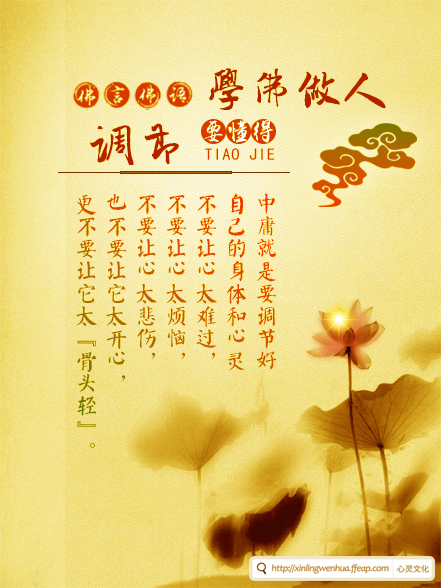 佛言佛语
學佛做人
要懂得
调节
TIAO JIE
中庸就是要调节好
自己的身体和心灵
不要让心太难过，
不要让心太烦恼，
不要让心太悲伤，
也不要让它太开心，
更不要让它太『骨头轻』。
http://xinlingwenhua.ffeap.com
心灵文化